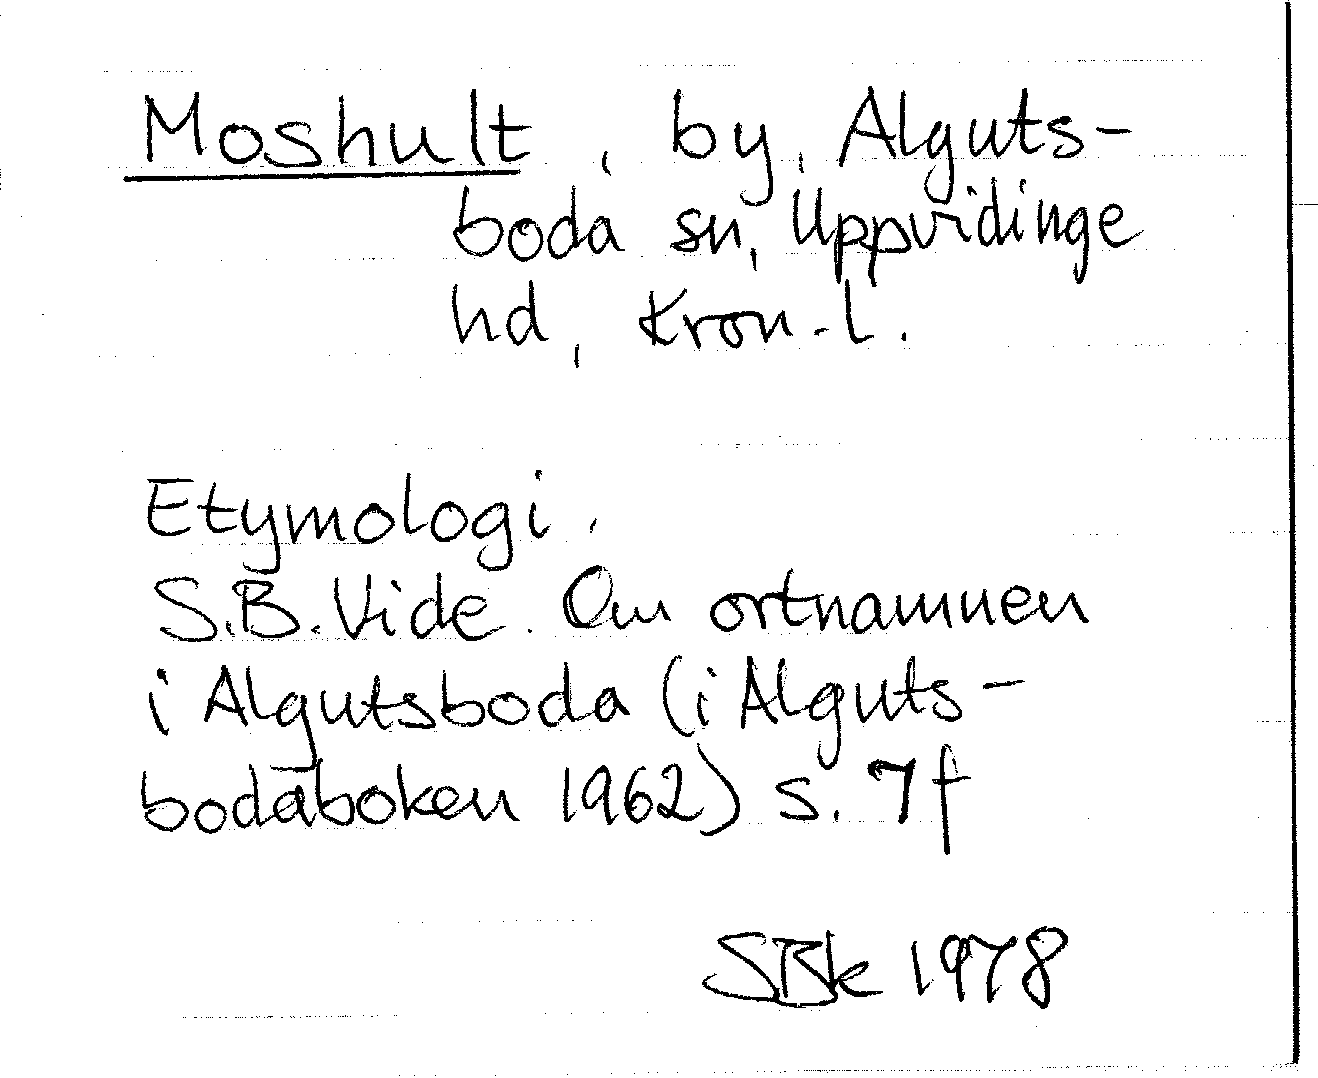 Moshult, by, Alguts-
boda sn, Uppvidinge
hd, Kron.l.
Etymologi.
S.B. Vide. Om ortnamnen
i Algutsboda (i Alguts-
bodaboken 1962) s. 7f
SBk 1978